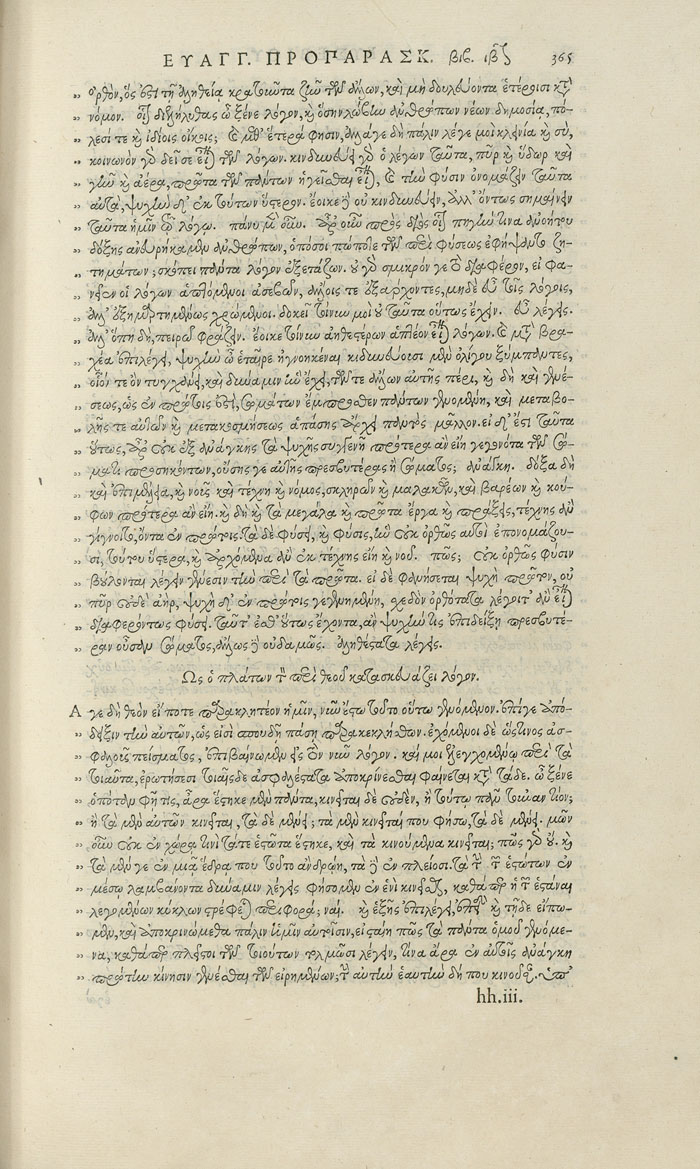 ΕΥΑΓΓ. ΠΡΟΠΑΡΑΣΚ. βιβ. ιβ 365
ὀρθὸν, ὅς ἐστι τῇ ἀληθείᾳ κρατοῦντα ζῆν τῶν ἄλλων, καὶ μὴ δουλεύοντα ἑτέροισι κτ
νόμον. οἷον διελήλυθας ὦ ξένε λόγον, κὶ ὅσην λώβην ἀνθρώπων νέων δημοσίᾳ, πό-
λεσί τε κὶ ἰδίοις οἴκοις; κὶ μεθ' ἕτερά φησιν, ἀλλ' ἄγε δὴ πάλιν λέγε μοι κλεινία κὶ σὺ,
κοινωνὸν γὸ δεῖ σε εἶναι τῶν λόγων. κινδυνεύει γὸ ὁ λέγων ταῦτα, πῦρ κὶ ὕδωρ καὶ
γῆν κὶ ἀέρα, πρῶτα τῶν πάντων ἡγεῖσθαι εἶναι, κὶ τὴν φύσιν ὀνομάζειν ταῦτα
αὐτὰ, ψυχὴν δ' ἐκ τούτων ὕστερον. ἔοικε δὲ οὐ κινδυνεύειν, ἀλλ' ὄντως σημαίνειν
ταῦτα ἡμῖν τῷ λόγῳ. πάνυ μὲν οὖν. ἆρ' οὖν πρὸς διὸς οἷον πηγήν τινα ἀνοήτου
δόξης ἀνευρήκαμεν ἀνθρώπων, ὁπόσοι πώποτε τῶν περὶ φύσεως ἐφήψαντο ζη-
τημάτων; σκόπει πάντα λόγον ἐξετάζων. οὐ γὸ σμικρόν γε τὸ διαφέρον, εἰ φα-
νεῖεν οἱ λόγων ἁπτόμενοι ἀσεβῶν, ἄλλοις τε ἐξάρχοντες, μηδὲ εὖ τοῖς λόγοις,
ἀλλ' ἐξημαρτημένως χρώμενοι. δοκεῖ τοίνυν μοι ταῦτα οὕτως ἔχειν. εὖ λέγεις.
ἀλλ' ὅπη δὴ, πειρῶ φράζειν. ἔοικε τοίνυν ἀηθεστέρων ἁπτέον εἶναι λόγων. κὶ μετ βρα-
χέα ἐπιλέγει, ψυχὴν ὦ ἑταῖρε ἠγνοηκέναι κινδυνεύουσι μὲν ὀλίγου ξύμπαντες,
οἷόν τε ὂν τυγχάνει, καὶ δύναμιν ἣν ἔχει, τῶν τε ἄλλων αὐτῆς πέρι, κὶ δὴ καὶ γενέ-
σεως, ὡς ἐν πρώτοις ἐστὶ, σωμάτων ἔμπροσθεν πάντων γενομένη, καὶ μεταβο-
λῆς τε αὐτῶν κὶ μετακοσμήσεως ἁπάσης ἄρχει παντὸς μᾶλλον. εἰ δ' ἔστι ταῦτα
οὕτως, ἆρ' οὐκ ἐξ ἀνάγκης τὰ ψυχῆς συγγενῆ πρότερα ἂν εἴη γεγονότα τῶν σώ-
ματι προσηκόντων, οὔσης γε αὐτῆς πρεσβυτέρας ἢ σώματος; ἀνάγκη. δόξα δὴ
καὶ ἐπιμέλεια, κὶ νοῦς καὶ τέχνη κὶ νόμος, σκληρῶν κὶ μαλακῶν, καὶ βαρέων κὶ κού-
φων πρότερα ἂν εἴη. κὶ δὴ κὶ τὰ μεγάλα κὶ πρῶτα ἔργα κὶ πράξεις, τέχνης ἂν
γίγνοιτο, ὄντα ἐν πρώτοις. τὰ δὲ φύσει, κὶ φύσις, ἣν οὐκ ὀρθῶς αὐτοὶ ἐπονομάζου-
σι, τούτου ὕστερα, κὶ ἀρχόμενα ἂν ἐκ τέχνης εἴη κὶ νοῦ. πῶς; οὐκ ὀρθῶς φύσιν
βούλονται λέγειν γένεσιν τὴν περὶ τὰ πρῶτα. εἰ δὲ φανήσεται ψυχὴ πρῶτον, οὐ
πῦρ οὐδὲ ἀὴρ, ψυχὴ δ' ἐν πρώτοις γεγενημένη, σχεδὸν ὀρθότατα λέγοιτ' ἂν εἶναι
διαφερόντως φύσει. ταῦτ' ἔσθ' οὕτως ἔχοντα, ἂν ψυχήν τις ἐπιδείξῃ πρεσβυτέ-
ραν οὖσαν σώματος, ἄλλως δὲ οὐδαμῶς. ἀληθέστατα λέγεις.
Ως ὁ πλάτων τὸν περὶ θεοῦ κατασκευάζει λόγον.
Α γε δὴ θεὸν εἴ ποτε παρακλητέον ἡμῖν, νῦν ἔστω τοῦτο οὕτω γενόμενον. ἐπί γε ἀπό-
δειξιν τὴν αὐτῶν, ὡς εἰσὶ σπουδῇ πάσῃ παρακεκλήσθων. ἐχόμενοι δὲ ὥς τινος ἀσ-
φαλοῦς πείσματος, ἐπιβαίνωμεν εἰς τὸν νῦν λόγον. καί μοι ἐλεγχομένῳ περὶ τὰ
τοιαῦτα, ἐρωτήσεσι τοιαῖσδε ἀσφαλέστατα ἀποκρίνεσθαι φαίνεται κτ τάδε. ὦ ξένε
ὁπόταν φῇ τις, ἆρα ἕστηκε μὲν πάντα, κινεῖται δὲ οὐδὲν, ἢ τούτῳ πᾶν τοὐναντίον;
ἢ τὰ μὲν αὐτῶν κινεῖται, τὰ δὲ μένει; τὰ μὲν κινεῖται που φήσω, τὰ δὲ μένει. μῶν
οὖν οὐκ ἐν χώρᾳ τινὶ τά τε ἑστῶτα ἕστηκε, καὶ τὰ κινούμενα κινεῖται; πῶς γὸ οὔ. κὶ
τὰ μέν γε ἐν μιᾷ ἕδρᾳ που τοῦτο ἂν δρῴη, τὰ δὲ ἐν πλείοσι. τὰ τὴν τῶν ἑστώτων ἐν
μέσῳ λαμβάνοντα δύναμιν λέγεις φήσομεν ἐν ἑνὶ κινεῖσθαι, καθάπερ ἡ τῶν ἑστάναι
λεγομένων κύκλων στρέφεται περιφορά; ναί. κὶ ἑξῆς ἐπιλέγει, ἔτι κὶ τῇδε εἴπω-
μεν, καὶ ἀποκρινώμεθα πάλιν ἡμῖν αὐτοῖσιν, εἰ σταίη πως τὰ πάντα ὁμοῦ γενόμε-
να, καθάπερ πλεῖστοι τῶν τοιούτων τολμῶσι λέγειν, τίνα ἄρα ἐν αὐτοῖς ἀνάγκη
πρώτην κίνησιν γενέσθαι τῶν εἰρημένων; τὴν αὐτὴν ἑαυτὴν δή που κινοῦσαν. ὑπ'
hh.iii.